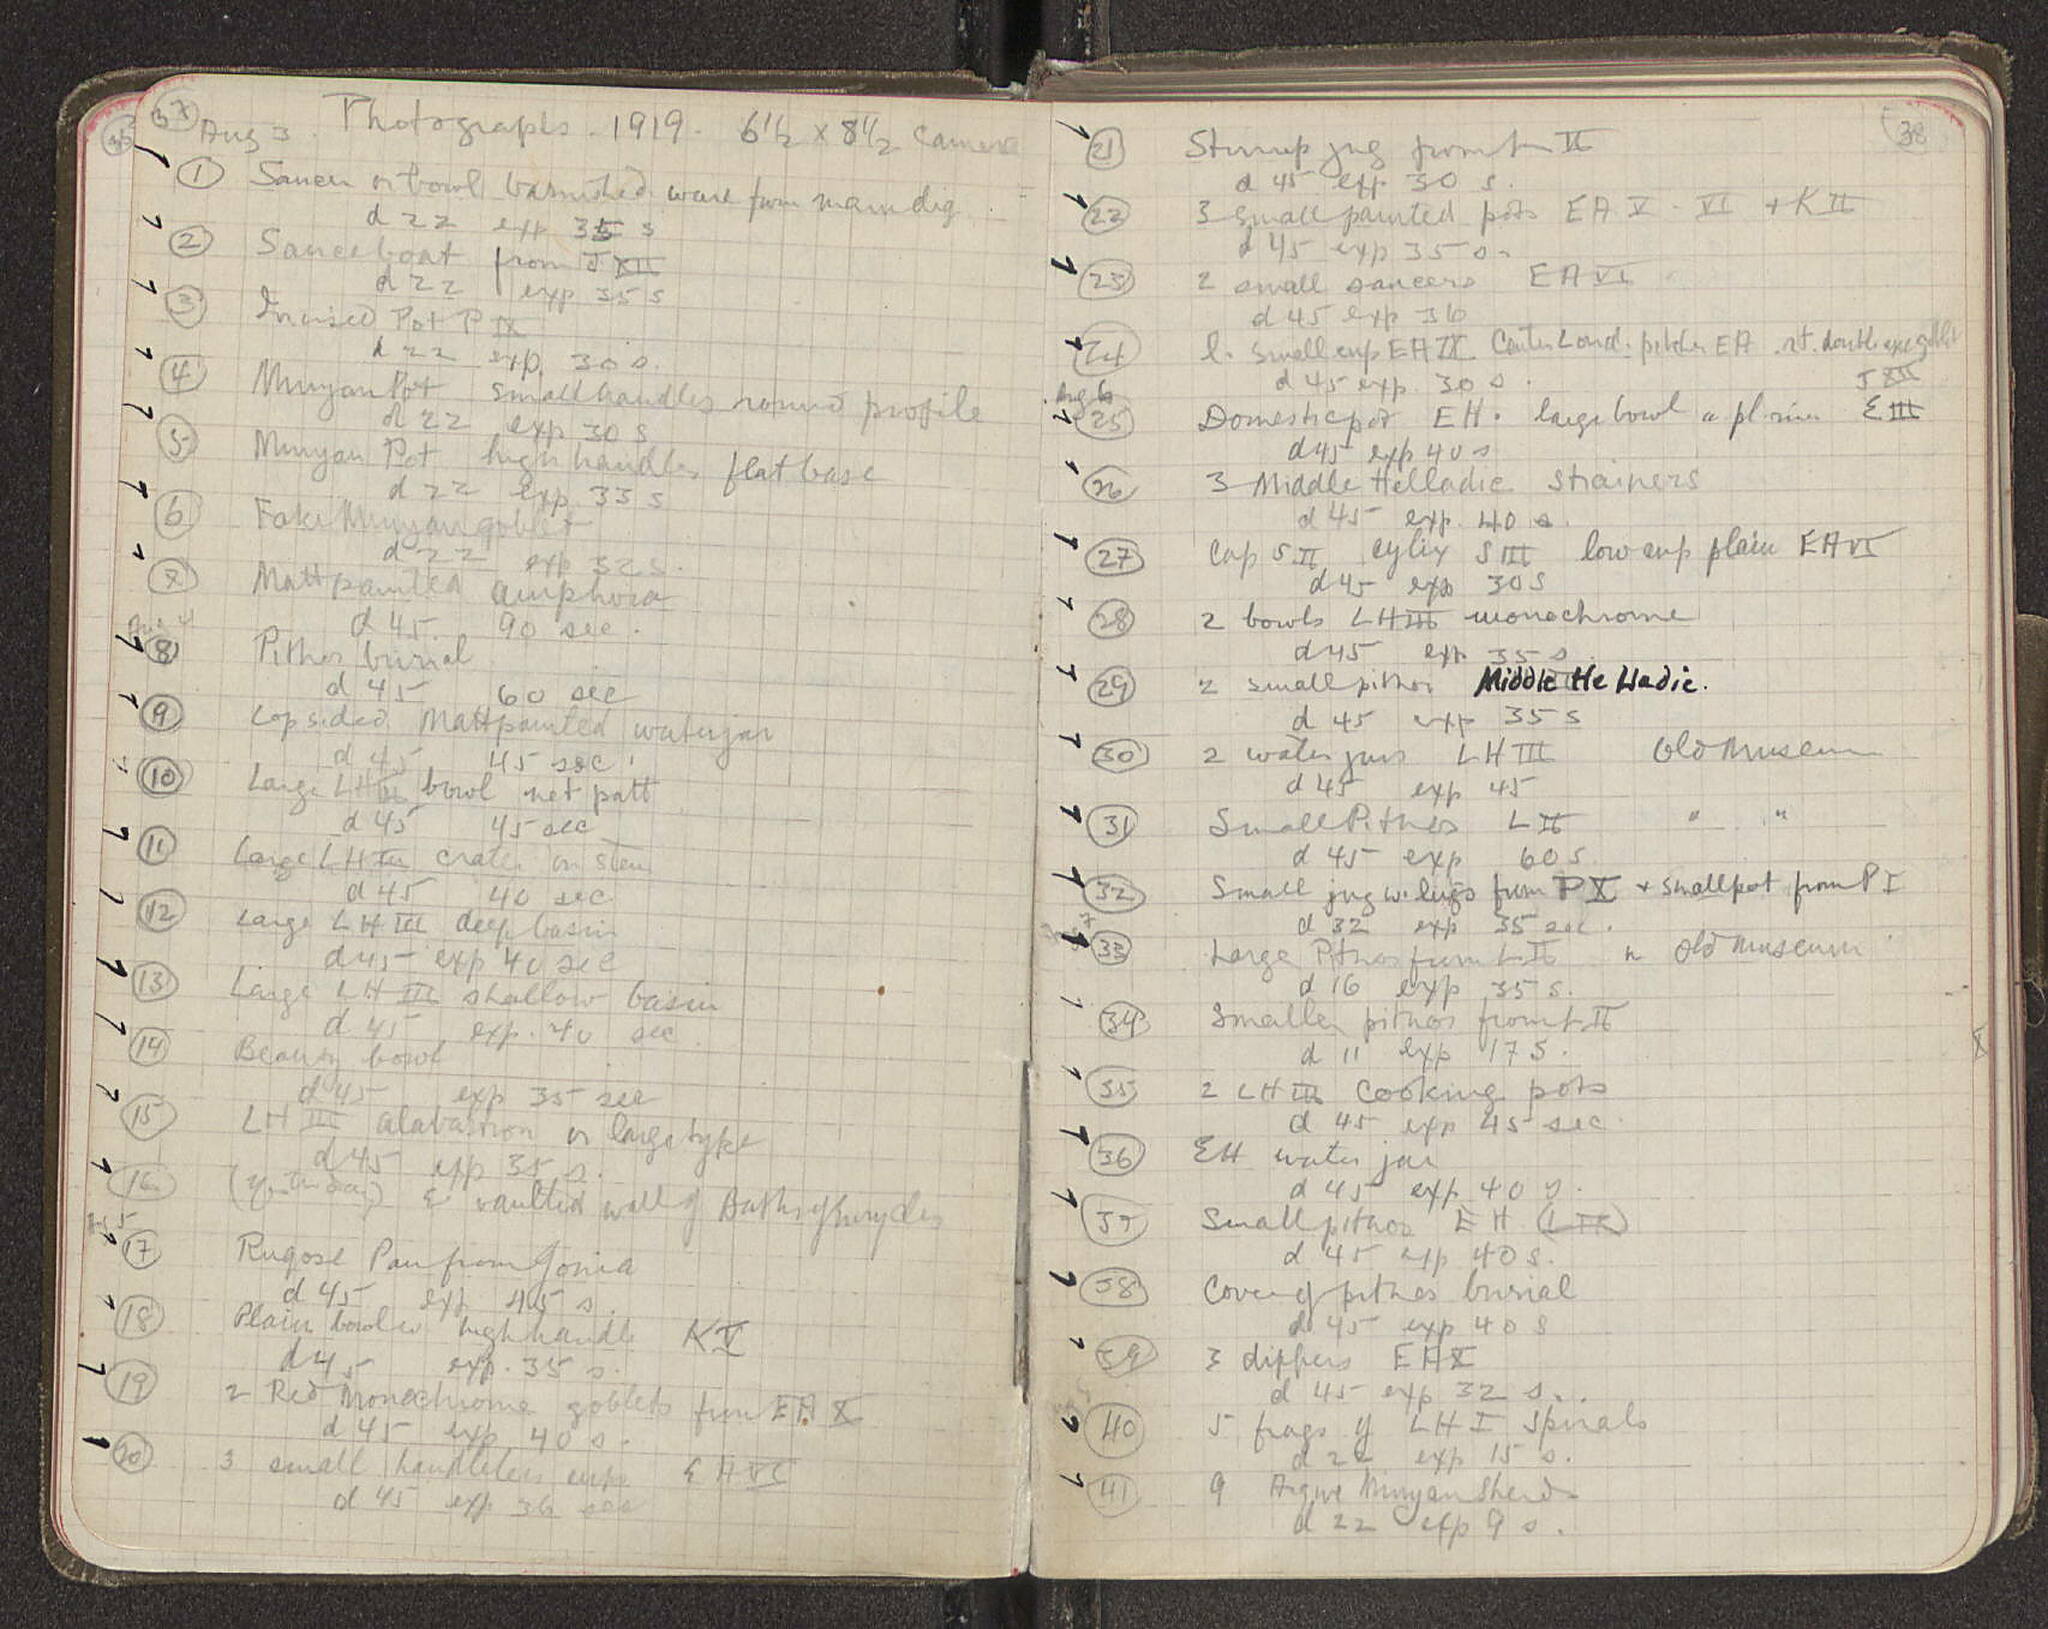 37
Aug 3. Photographs. 1919. 6 1/2 x 8 1/2 Camera
1 Saucer or bowl varnished ware from main dig.
d 22 exp 35 s
2 Sauceboat from J XII
d 22 exp 35 s
3 Incised Pot P IX
d 22 exp. 30 s.
4 Minyan Pot small handles round profile
d 22 exp 30 s
5 Minyan Pot high handles flat base
d 22 exp 33 s
6 Fake Minyan goblet
d 22 exp 32 s.
7 Mattpainted amphora
d 45. 90 sec.
Aug 4
8 Pithos burial
d 45 60 sec
9 Lopsided Mattpainted waterjar
d 45 45 sec.
10 Large LH III bowl net patt
d 45 45 sec
11 Large LH III crater on stem
d 45 40 sec
12 Large LH III deep basin
d 45 exp 40 sec
13 Large LH III shallow basin
d 45 exp. 40 sec.
14 bowl
d 45 exp 35 sec
15 LH III alabastron or large type
d 45 exp 35 s.
16 (yesterday) & vaulted wall of Baths of Eurycles
Aug 5
17 Rugose Pan from Gonia
d 45 exp 45 s.
18 Plain bowl w high handle K V
d 45 exp. 35 s.
19 2 Red Monochrome goblets from EA X
d 45 exp 40 s.
20 3 small handleless cups EA VI
d 45 exp 36 sec
38
21 Stirrup jug from L II
d 45 exp 30 s.
22 3 small painted pots EA V - VI + K II
d 45 exp 35 s.
23 2 small saucers EA VI
d 45 exp 36
24 l. small cup EA IX Center pitcher EA . rt. double axe goblet
d 45 exp. 30 s. J XII
Aug 6
25 Domestic pot EH. large bowl " plain E III
d 45 exp 40 s
26 3 Middle Helladic strainers
d 45 exp. 40 s.
27 Cup S II cylix S III low cup plain EA VI
d 45 exp 30 s
28 2 bowls LH III monochrome
d 45 exp 35 s
29 2 small pithoi Middle Helladic.
d 45 exp 35 s
30 2 water jars LH III Old Museum
d 45 exp 45
31 Small Pithos L II " "
d 45 exp 60 s
32 Small jug w. lugs from P X + small pot from P I
d 32 exp 35 sec.
33 Large Pithos from L II in Old Museum
d 16 exp 35 s.
34 Smaller pithos from L II
d 11 exp 17 s.
35 2 LH III Cooking pots
d 45 exp 45 sec.
36 EH water jar
d 45 exp 40 s.
37 Small pithos EH (L II)
d 45 exp 40 s.
38 Cover of pithos burial
d 45 exp 40 s
39 3 dippers EA X
d 45 exp 32 s.
40 5 frags of LH I spirals
d 22 exp 15 s.
41 9 Argive Minyan Sherds
d 22 exp 9 s.